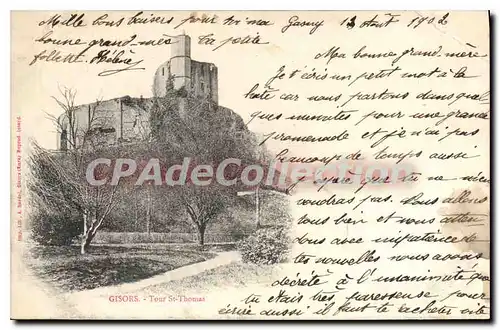 Mille bons baisers pour toi ma
bonne grand-mère ta petite
follette Hélène
Gasny 13 Aout 1902
Ma bonne grand-mère
J'écris un petit mot à la
hâte car nous partons dans quelques
minutes pour une grande
promenade et je n'ai pas
beaucoup de temps aussi
j'espère que tu ne m'en
voudras pas. Nous allons
tous bien et nous attendons
tous avec impatience de
tes nouvelles nous avons
décrété à l'unanimité que
tu étais très paresseuse pour
écrire aussi il faut te
CPArama.com
GISORS. - Tour St-Thomas